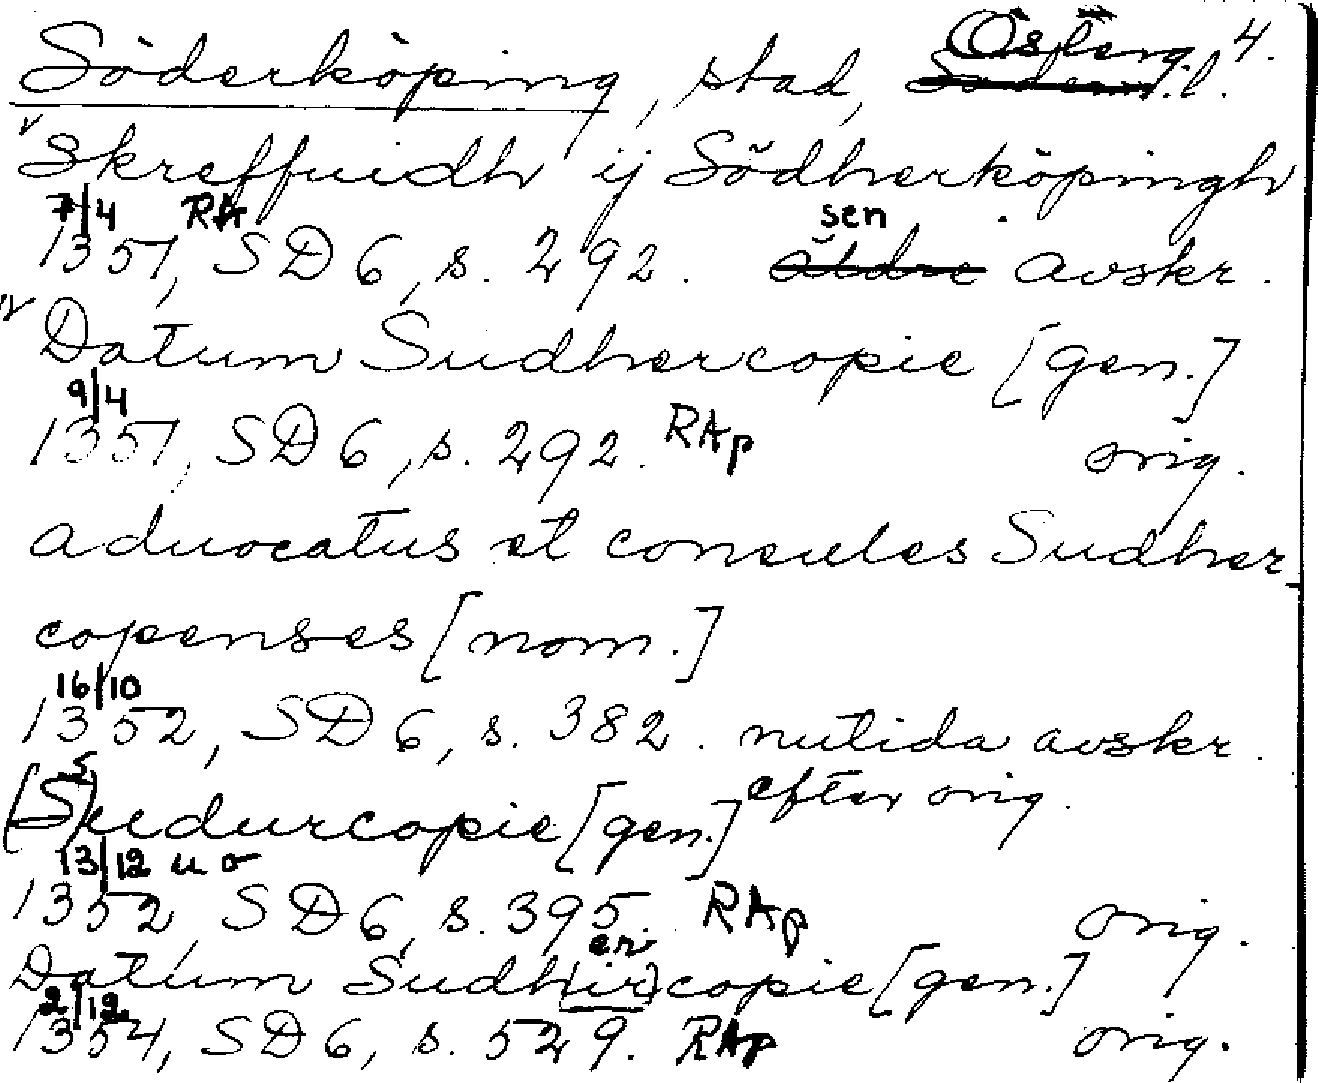 Söderköping, stad, Österg. 4.
Söderm.l.
Skreffuidh ij Södherköpingh
7/4 RA sen
1351, SD 6, s. 292. äldre avskr.
Datum Sudhercopie [gen.]
9/4
1351, SD 6, s. 292. RAp orig.
aduocatus et consules Sudher-
copenses [nom.]
16/10
1352, SD 6, s. 382. nutida avskr.
efter orig.
(S)udurcopie [gen.]
13/12 u o
1352, SD 6, s. 395. RAp orig.
er
Datum Sudh(ir)copie [gen.]
2/12
1354, SD 6, s. 529. RAp orig.